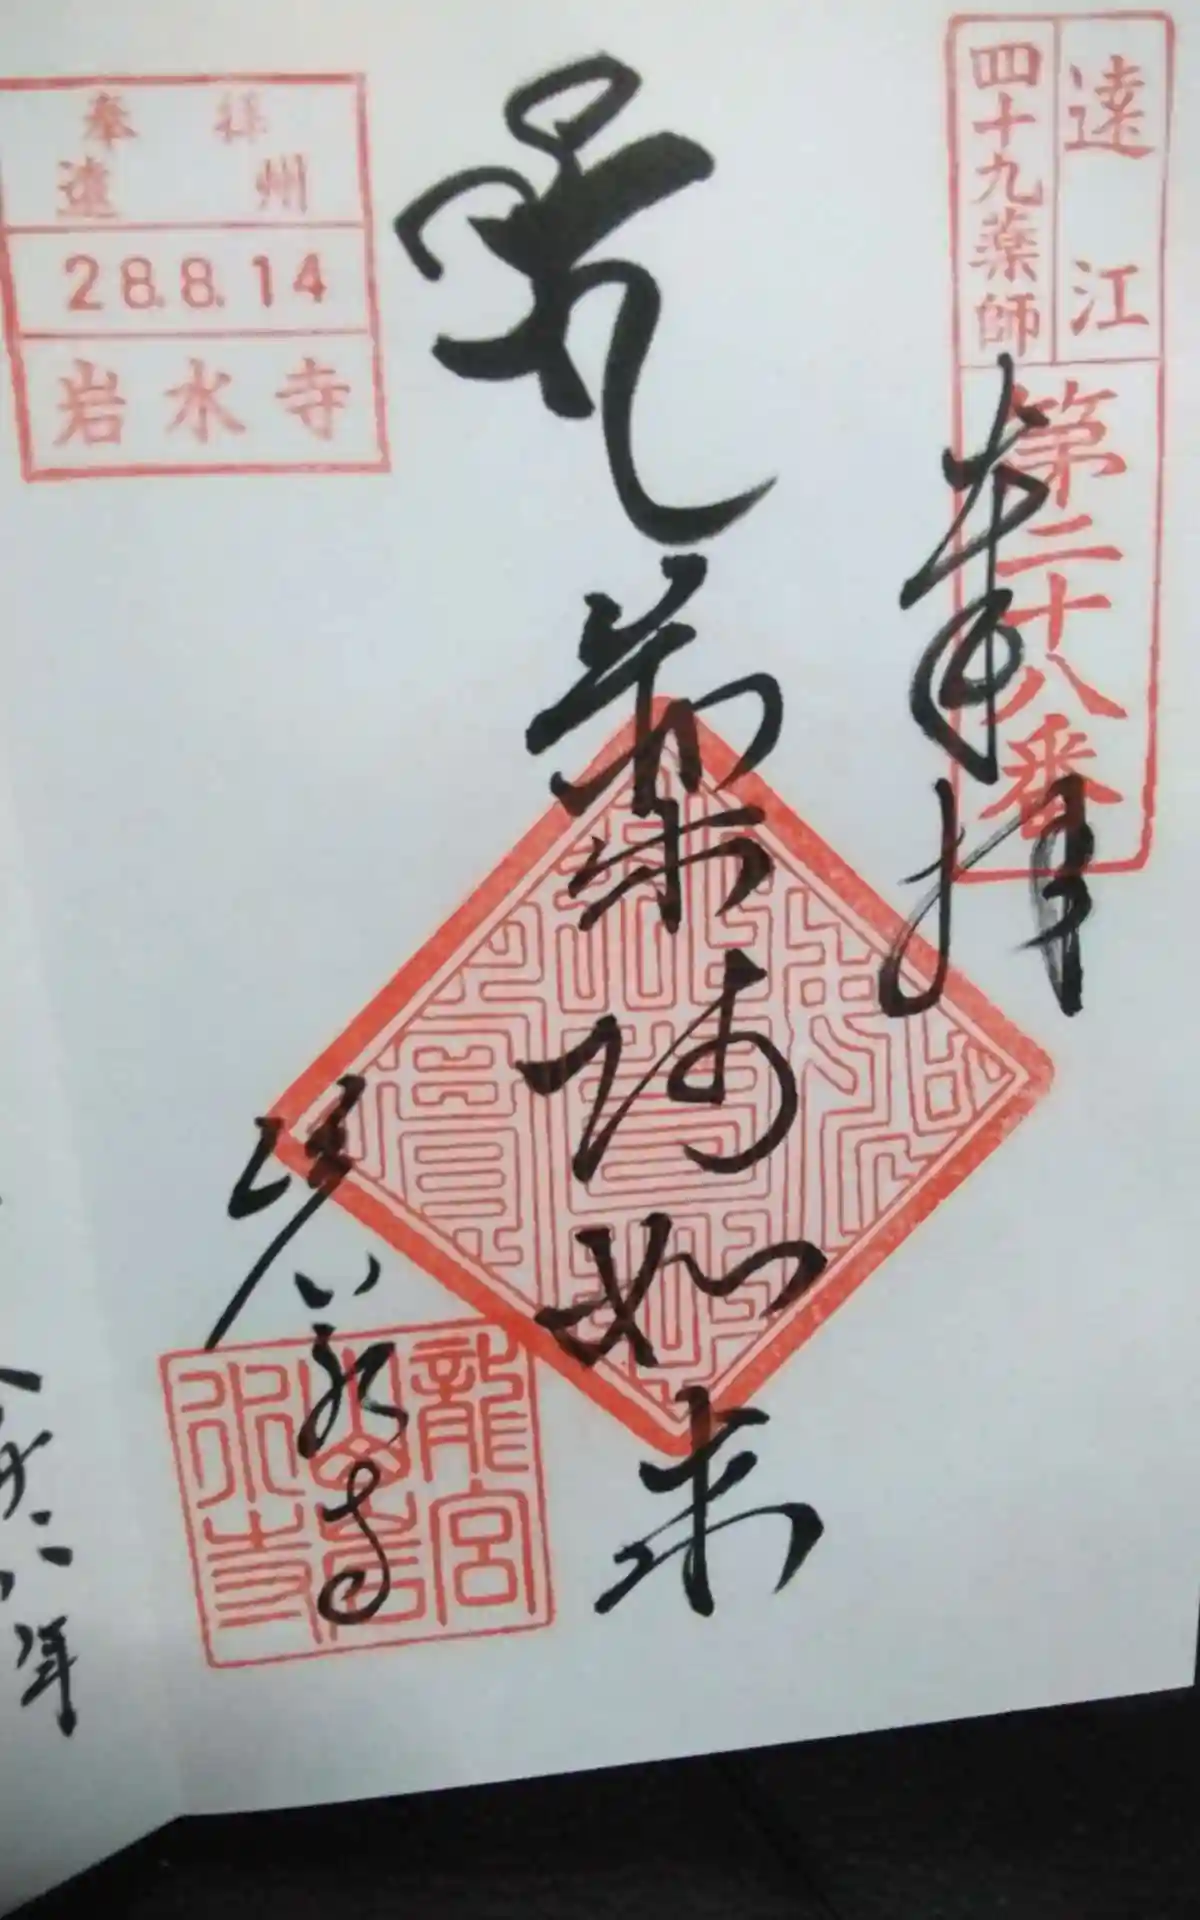 遠江
四十九薬師
第二十八番
奉拝
薬師如来
岩水寺
奉拝
遠州
28.8.14
岩水寺
龍宮
山岩
水寺
年